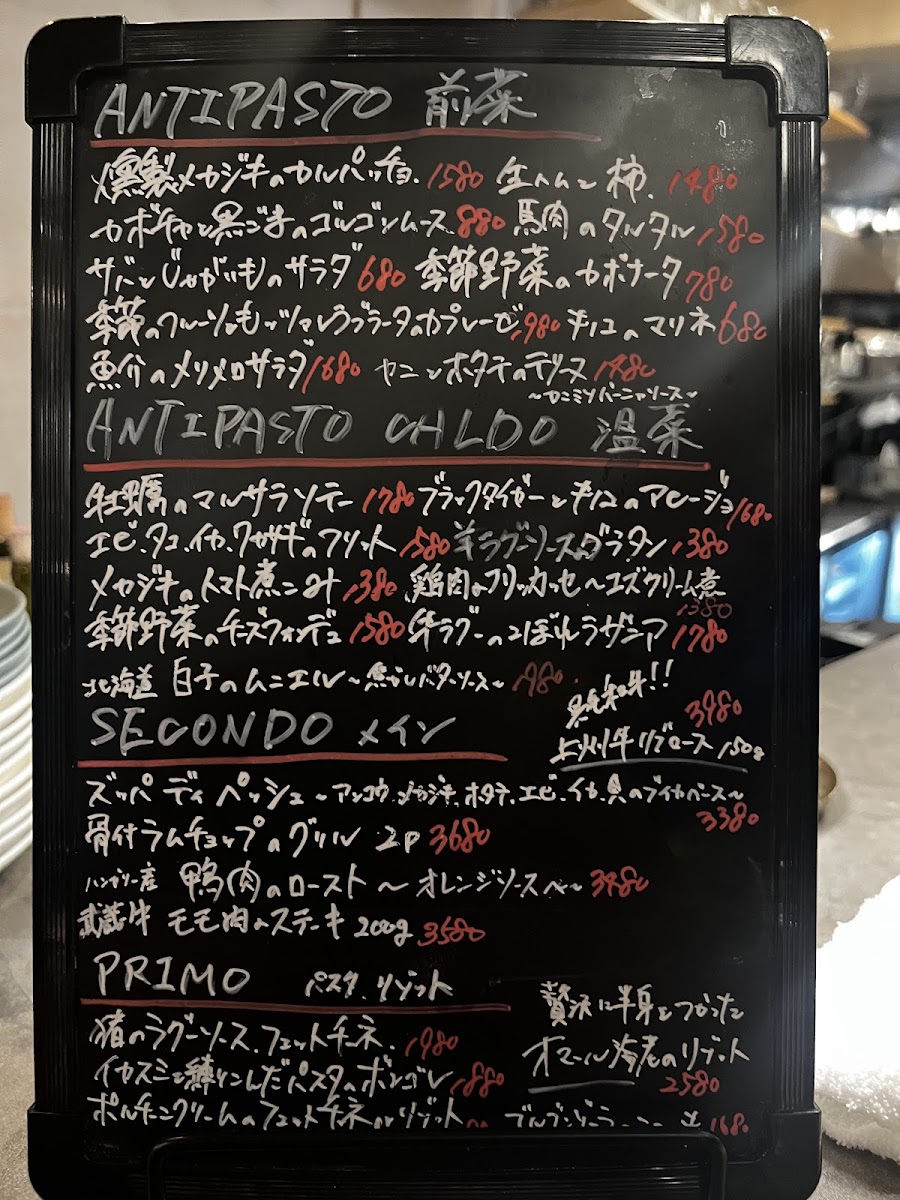 ANTIPASTO 前菜
燻製メカジキのカルパッチョ. 1580 生ハムと柿. 1480
カボチャと黒ごまのゴルゴンムース 880 馬肉のタルタル 1580
サバとじゃがいものサラダ 680 季節野菜のカポナータ 780
季節のフルーツとモッツァレラブラータのカプレーゼ 1980 キノコのマリネ 680
魚介のメリメロサラダ 1680 カニとホタテのテリーヌ 1480
~カニミソバーニャソース~
ANTIPASTO CALDO 温菜
牡蠣のマルサラソテー 1780 ブラックタイガーとキノコのアヒージョ 1680
エビ.タコ.イカ.ワカサギのフリット 1580 羊ラグーソースのグラタン 1380
メカジキのトマト煮こみ 1380 鶏肉のフリカッセ~チーズクリーム煮
1380
季節野菜のチーズフォンデュ 1580 牛ラグーのこぼれラザニア 1780
北海道 白子のムニエル~焦がしバターソース~ 1980.
黒毛和牛!!
3980
上州牛リブロース 150g
SECONDO メイン
ズッパ ディ ペッシェ~アンコウ.メカジキ.ホタテ.エビ.イカ.貝のブイヤベース~
3380
骨付ラムチョップのグリル 2P 3680
ハンガリー産 鴨肉のロースト ~オレンジソース~ 3480
武蔵牛 モモ肉のステーキ 200g 3580
PRIMO パスタ.リゾット
猪のラグーソース.フェットチーネ. 1980
イカスミを練りこんだパスタのボンゴレ 1880
贅沢に半身をつかった
オマール海老のリゾット
2580
ポルチーニクリームのフェットチーネorリゾット 168